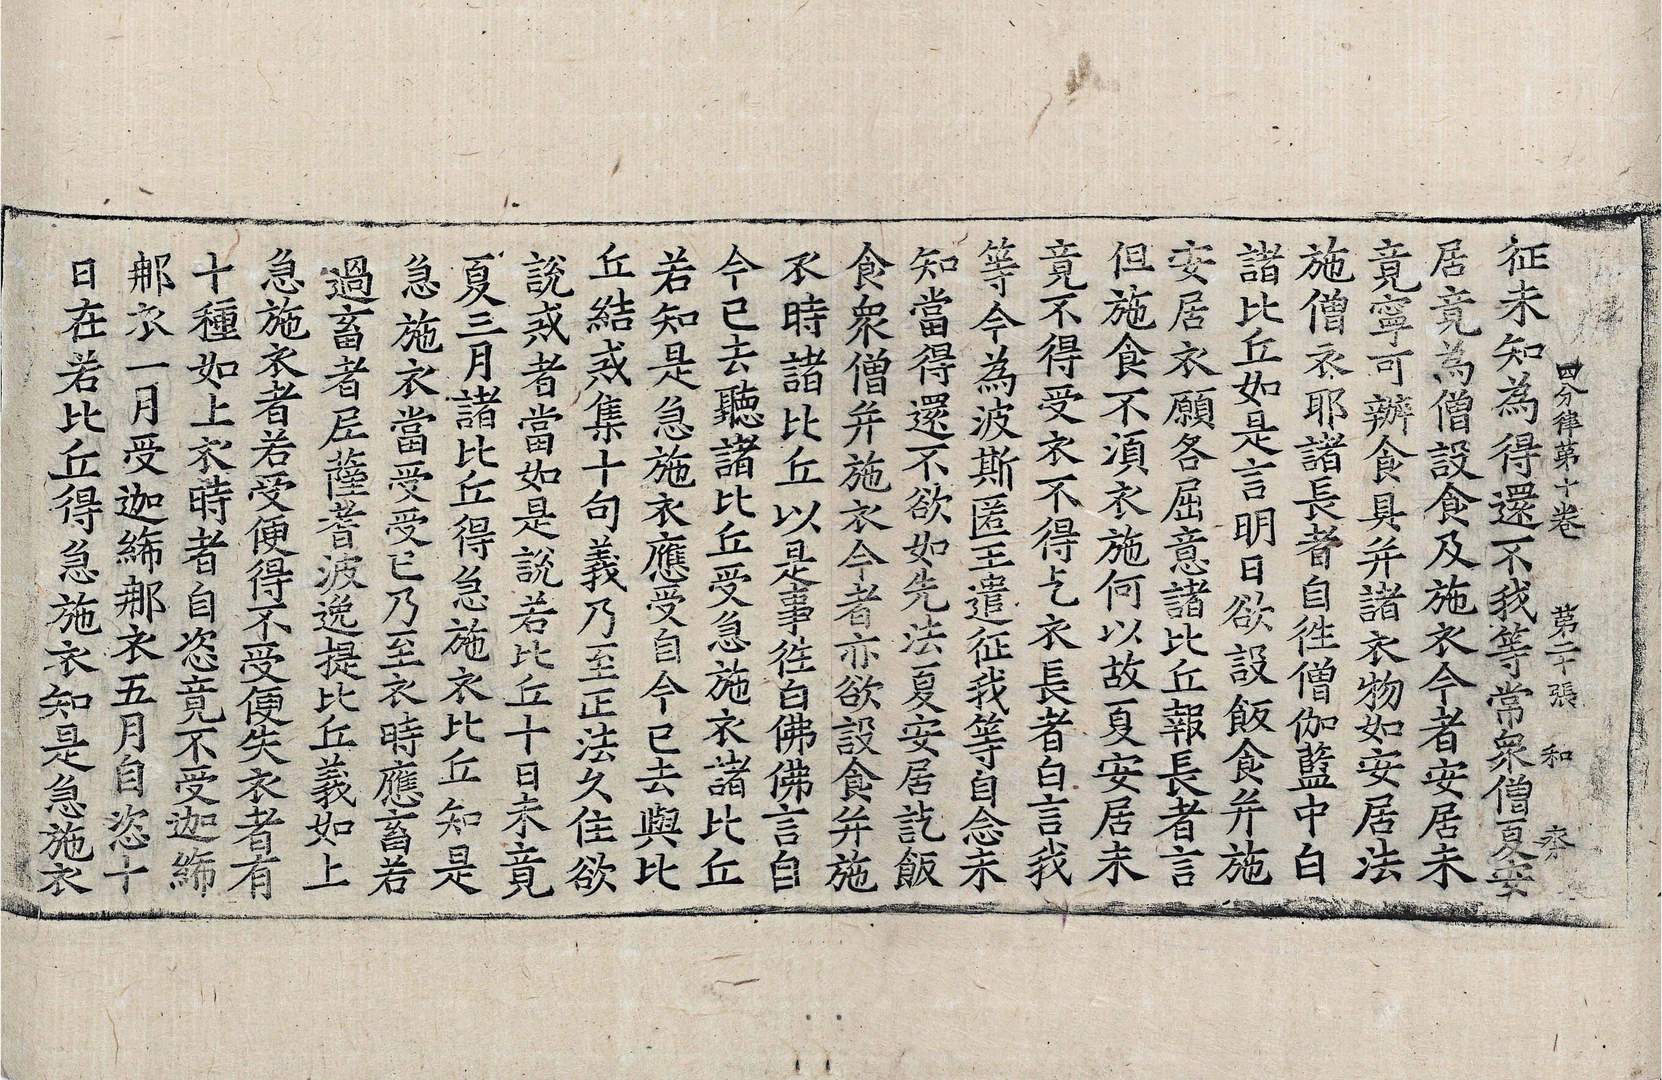 四分律第十卷　第二十張　和
征未知為得還不我等常衆僧夏安
居竟為僧設食及施衣今者安居未
竟寧可辦食具并諸衣物如安居法
施僧衣耶諸長者自徃僧伽藍中白
諸比丘如是言明日欲設飯食并施
安居衣願各屈意諸比丘報長者言
但施食不湏衣施何以故夏安居未
竟不得受衣不得乞衣長者白言我
等今為波斯匿王遣征我等自念未
知當得還不欲如先法夏安居訖飯
食衆僧并施衣今者亦欲設食并施
衣時諸比丘以是事徃白佛佛言自
今已去聽諸比丘受急施衣諸比丘
若知是急施衣應受自今已去與比
丘結戒集十句義乃至正法久住欲
說戒者當如是說若比丘十日未竟
夏三月諸比丘得急施衣比丘知是
急施衣當受受已乃至衣時應畜若
過畜者尼薩耆波逸提比丘義如上
急施衣者若受便得不受便失衣者有
十種如上衣時者自恣竟不受迦絺
那衣一月受迦絺那衣五月自恣十
日在若比丘得急施衣知是急施衣